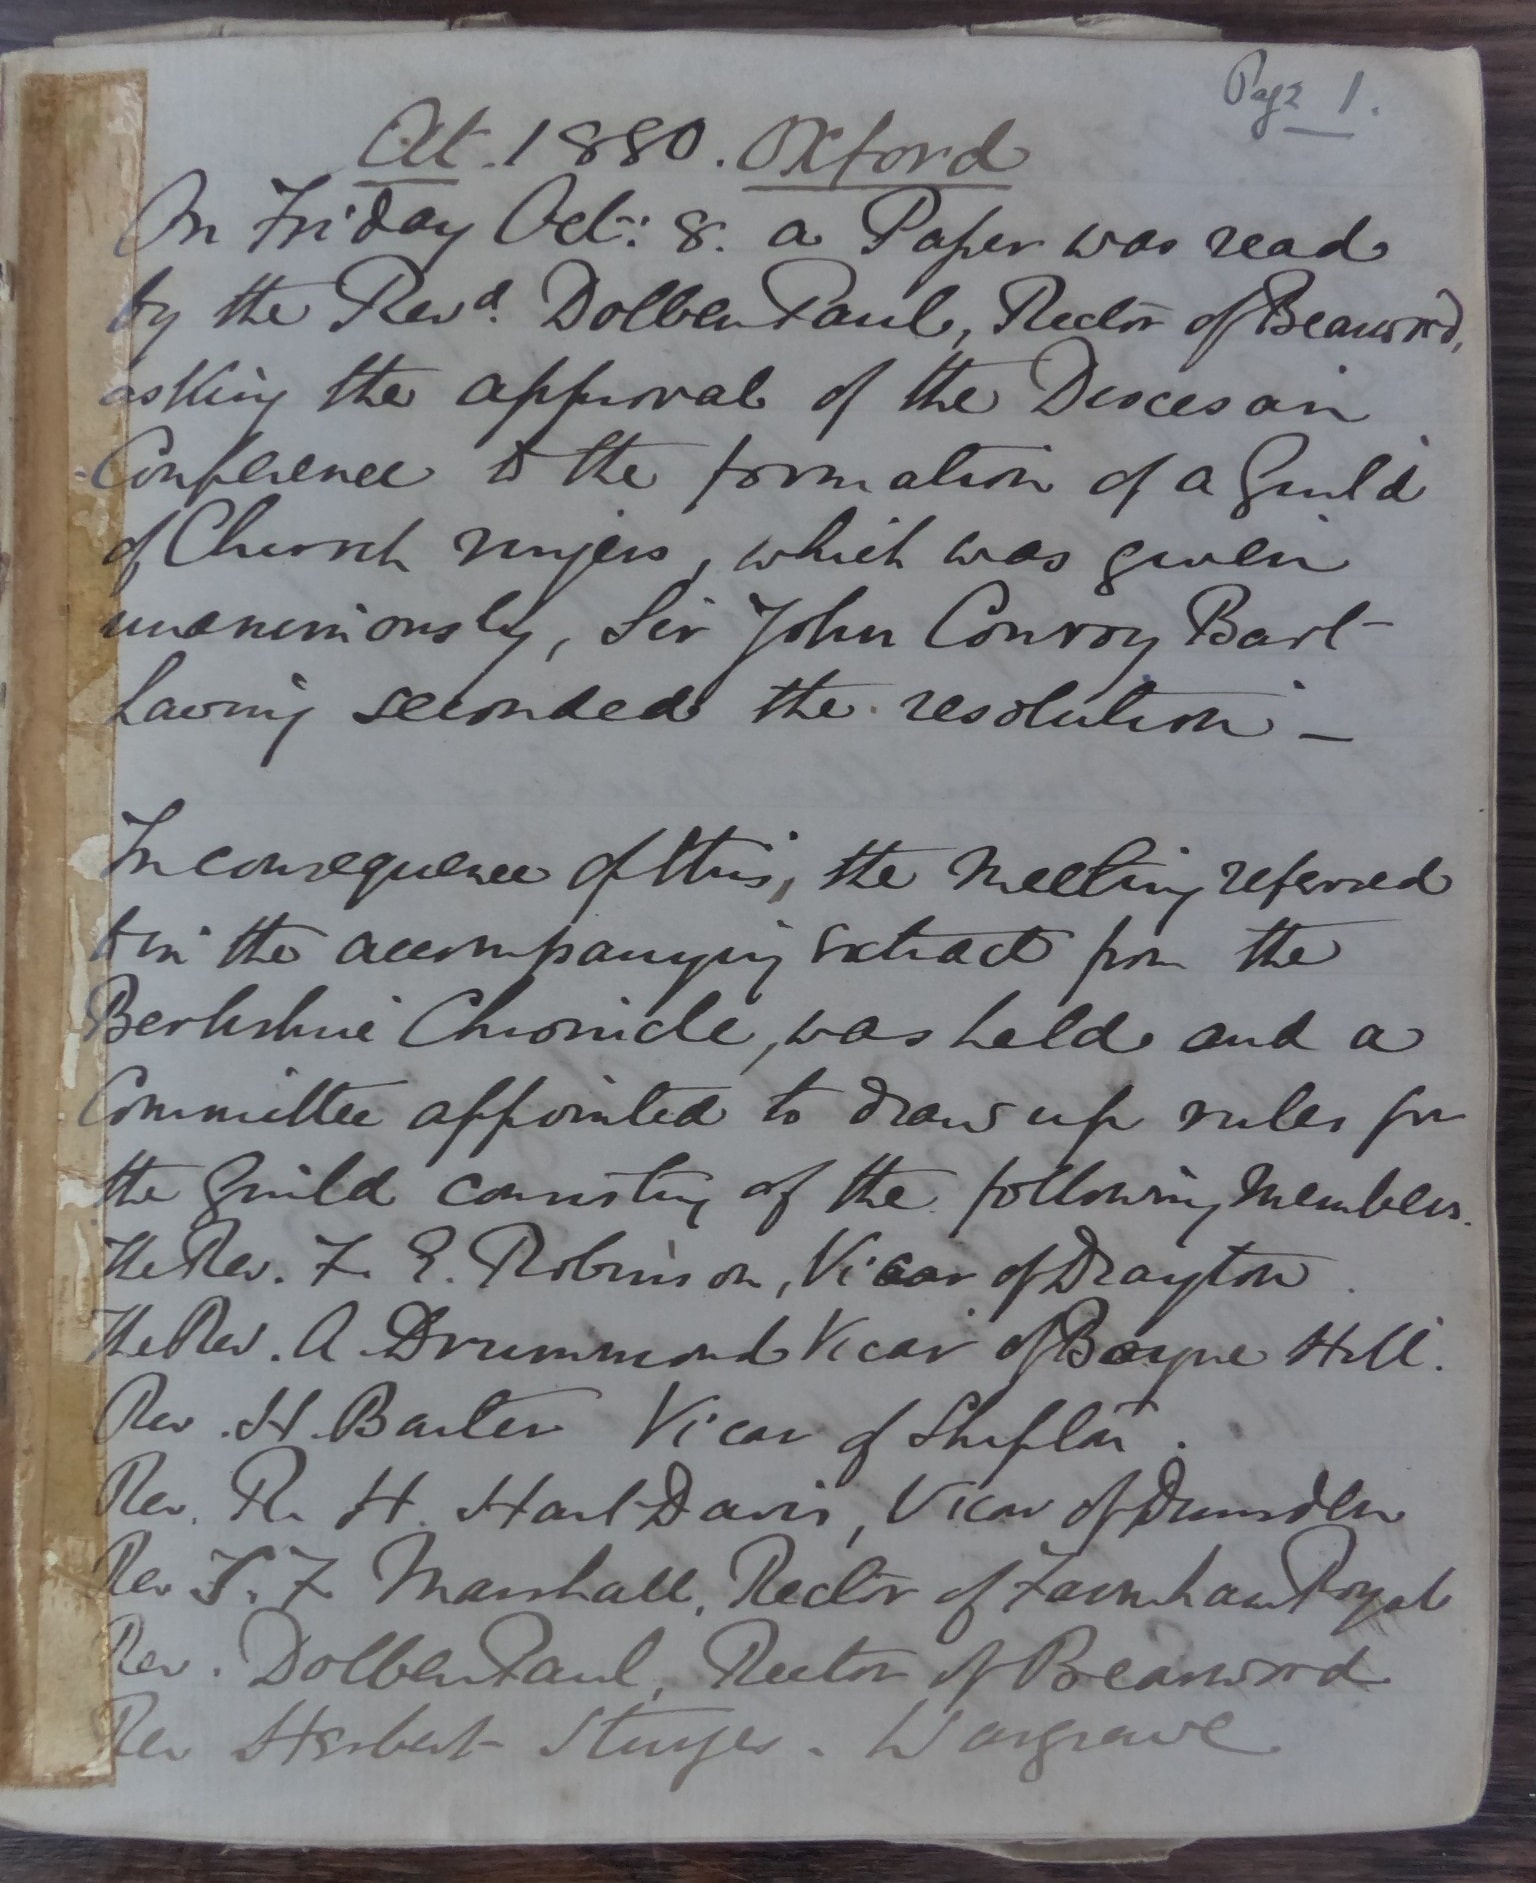 Page 1.
At. 1880. Oxford
On Friday Oct: 8. a Paper was read
by the Revd. Dolben Paul, Rector of Bearwood,
asking the approval of the Diocesan
Conference to the formation of a Guild
of Church ringers, which was given
unanimously, Sir John Conroy Bart
having seconded the resolution –
In consequence of this, the Meeting referred
to in the accompanying extract from the
Berkshire Chronicle, was held and a
Committee appointed to draw up rules for
the Guild consisting of the following Members.
The Rev. F. E. Robinson, Vicar of Drayton.
The Rev. A Drummond Vicar of Boyne Hill.
Rev. H. Barter Vicar of Shiplake.
Rev. R. H. Hart Davis, Vicar of Dunsden
Rev T. F Marshall, Rector of Farnham Royal
Rev. Dolben Paul, Rector of Bearwood
Rev Herbert Sturges. Wargrave